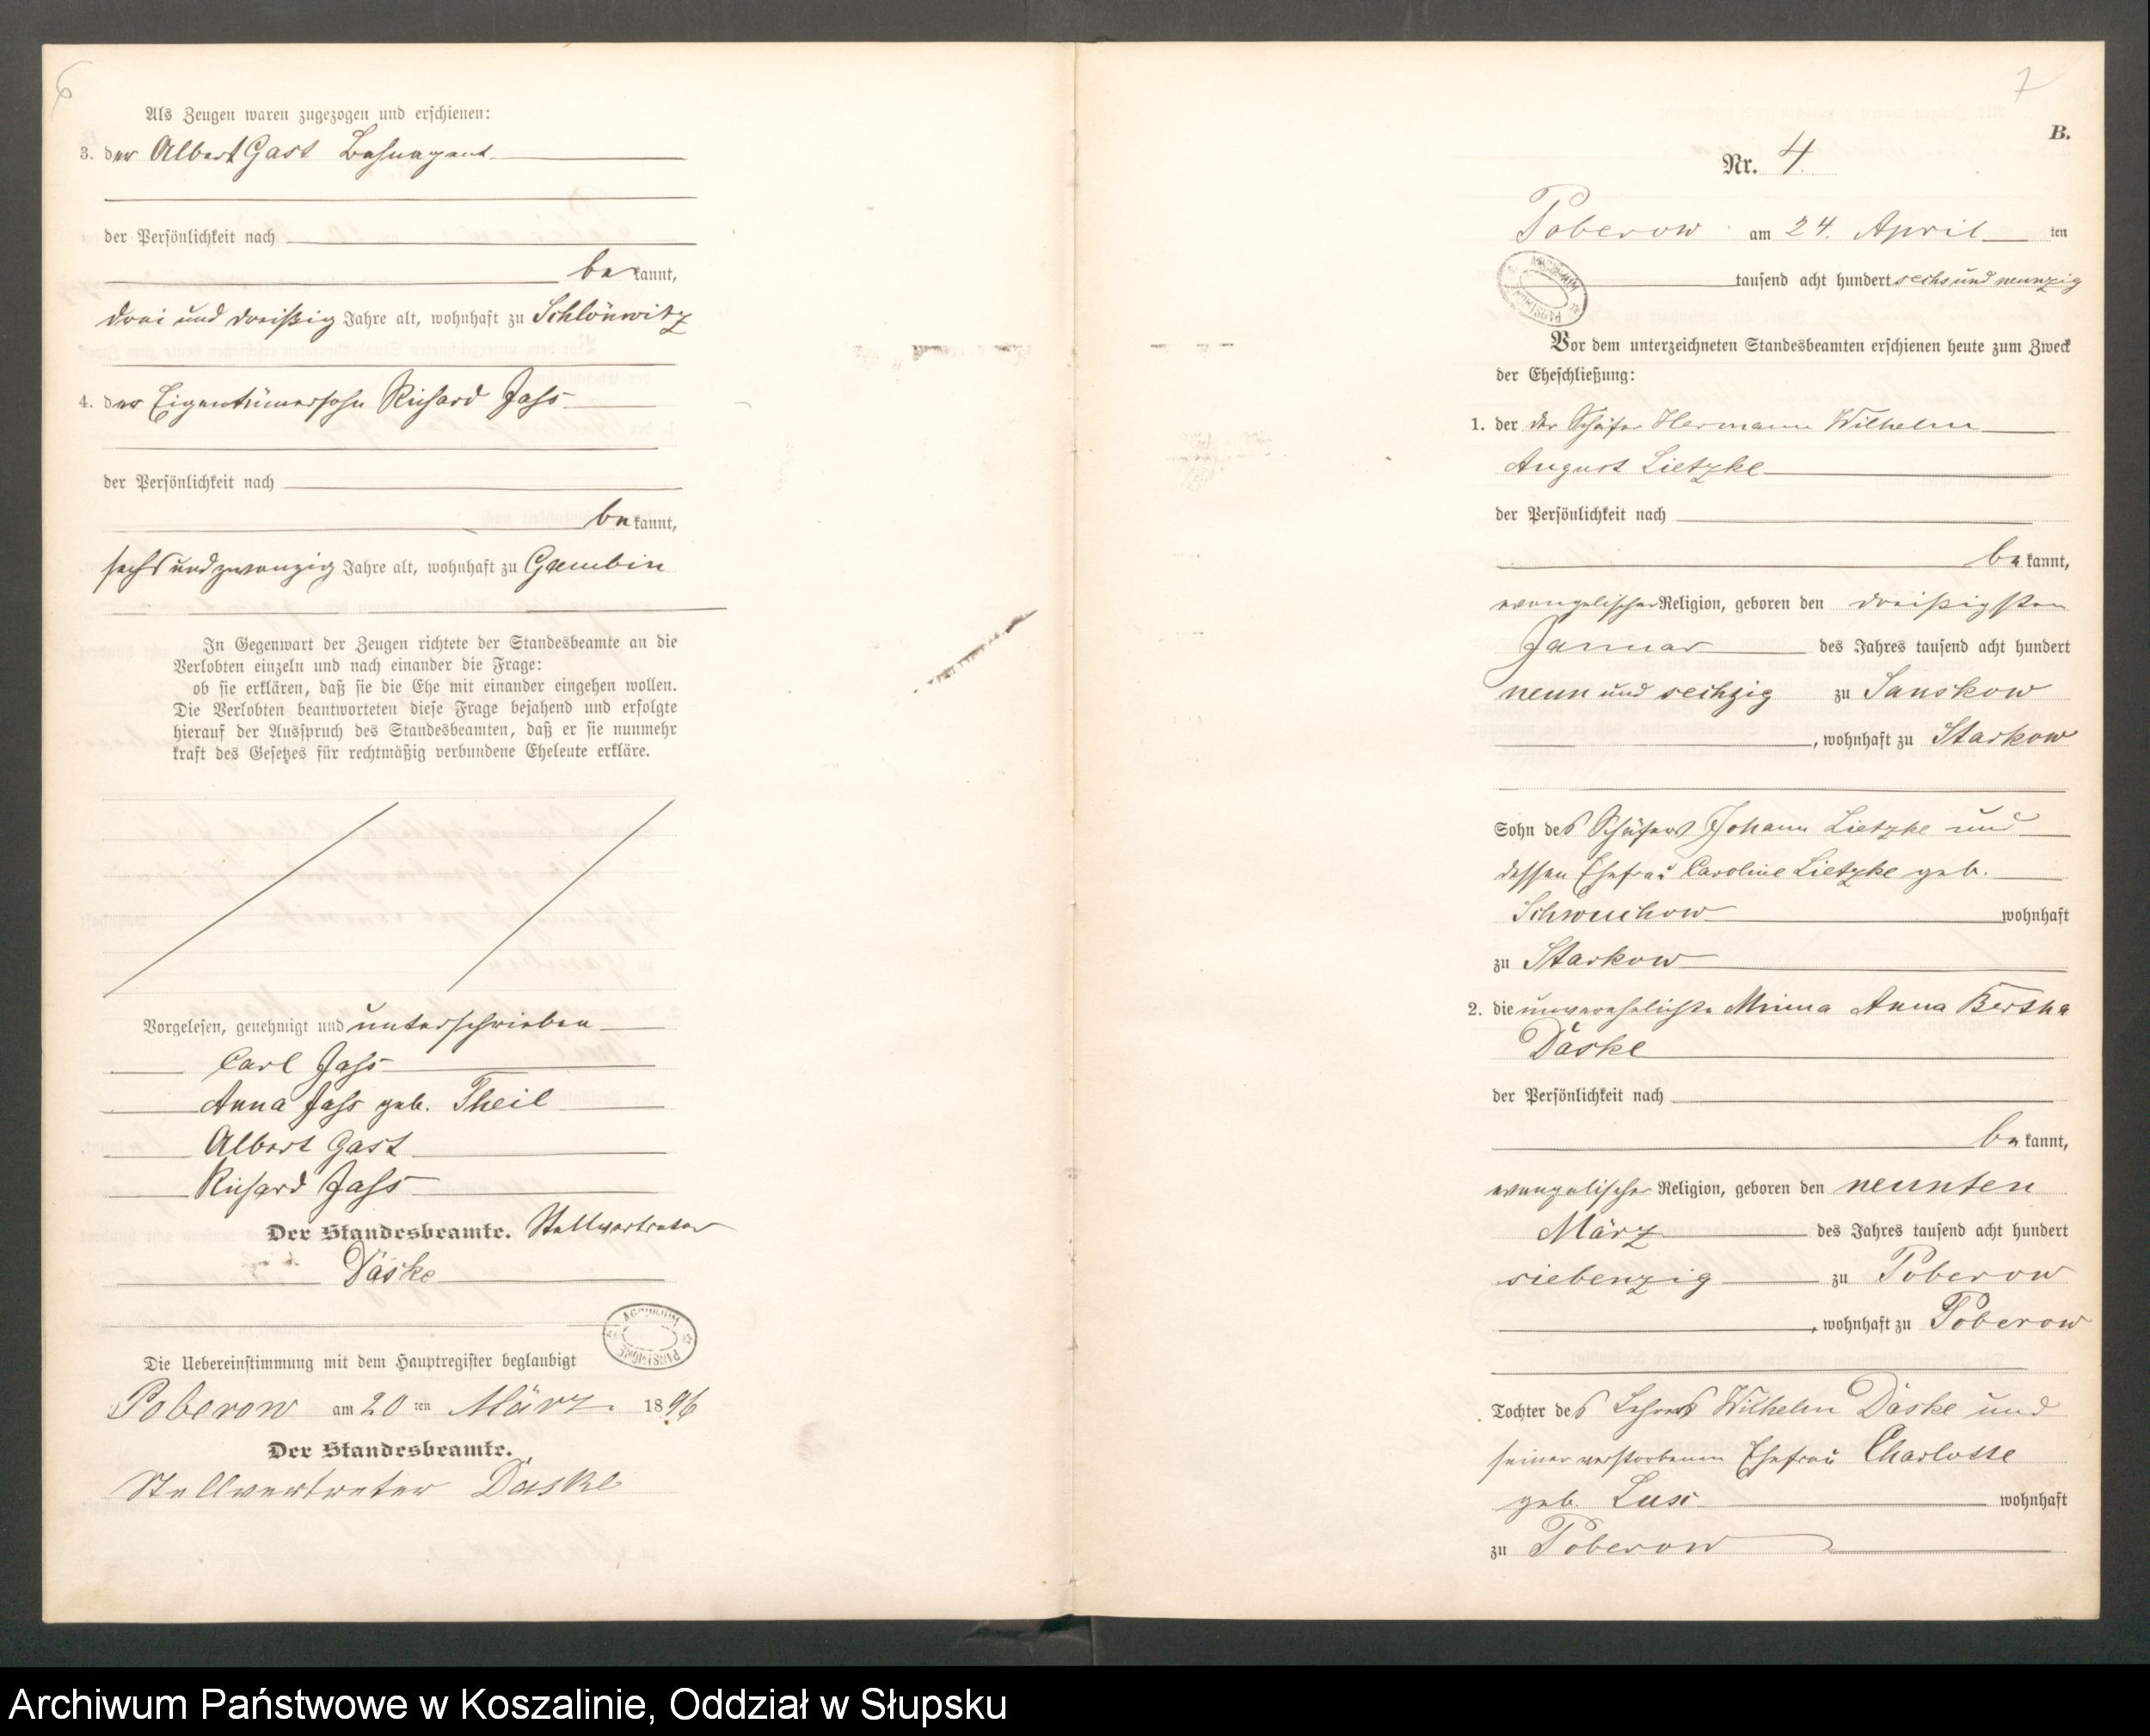 6
Als Zeugen waren zugezogen und erschienen:
3. der Albert Gast Bahnagent
der Persönlichkeit nach
bekannt,
drei und dreißig Jahre alt, wohnhaft zu Schlönwitz
4. der Eigentümersohn Richard Jass
der Persönlichkeit nach
bekannt,
sechs und zwanzig Jahre alt, wohnhaft zu Gambin
In Gegenwart der Zeugen richtete der Standesbeamte an die
Verlobten einzeln und nach einander die Frage:
ob sie erklären, daß sie die Ehe mit einander eingehen wollen.
Die Verlobten beantworteten diese Frage bejahend und erfolgte
hierauf der Ausspruch des Standesbeamten, daß er sie nunmehr
kraft des Gesetzes für rechtmäßig verbundene Eheleute erkläre.
Vorgelesen, genehmigt und unterschrieben
Carl Jass
Anna Jass geb. Theil
Albert Gast
Richard Jass
Der Standesbeamte. Stellvertreter
Däske
Die Uebereinstimmung mit dem Hauptregister beglaubigt
Poberow am 20 ten März. 1896
Der Standesbeamte.
Stellvertreter Däske
7
B.
Nr. 4.
Poberow am 24. April ten
tausend acht hundert sechs und neunzig
Vor dem unterzeichneten Standesbeamten erschienen heute zum Zweck
der Eheschließung:
1. der der Schäfer Hermann Wilhelm
August Lietzke
der Persönlichkeit nach
bekannt,
evangelischer Religion, geboren den dreißigsten
Januar des Jahres tausend acht hundert
neun und sechzig zu Sanskow
, wohnhaft zu Starkow
Sohn des Schäfers Johann Lietzke und
dessen Ehefrau Caroline Lietzke geb.
Schwuchow wohnhaft
zu Starkow
2. die unverehelichte Minna Anna Bertha
Däske
der Persönlichkeit nach
bekannt,
evangelischer Religion, geboren den neunten
März des Jahres tausend acht hundert
siebenzig zu Poberow
, wohnhaft zu Poberow
Tochter des Lehrers Wilhelm Däske und
seiner verstorbenen Ehefrau Charlotte
geb. wohnhaft
zu Poberow
Archiwum Państwowe w Koszalinie, Oddział w Słupsku